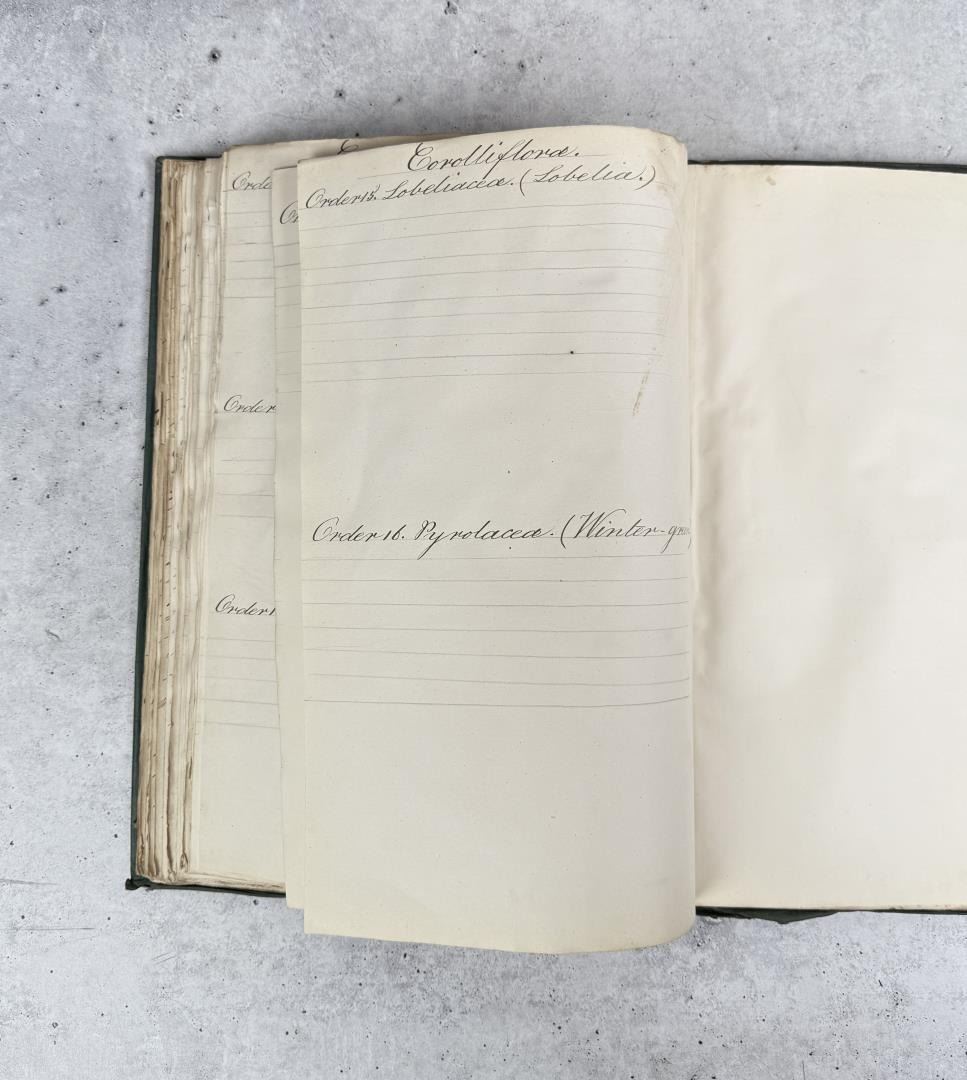 Corollifloræ.
Order 15. Lobeliaceæ. (Lobelia.)
Order 16. Pyrolaceæ. (Winter-green
Order
Order